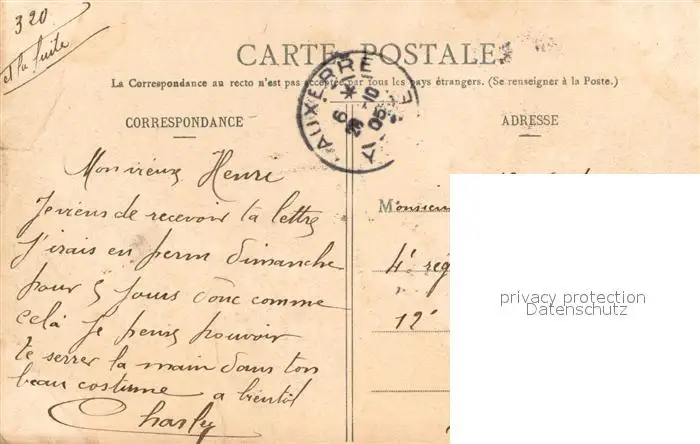 320
et la suite
CARTE POSTALE
La Correspondance au recto n'est pas acceptée par tous les pays étrangers. (Se renseigner à la Poste.)
AUXERRE
6
28-10
05
YONNE
CORRESPONDANCE
ADRESSE
Mon vieux Henri
Je viens de recevoir ta lettre
J'irais en perm dimanche
pour 5 jours donc comme
celà je peux pouvoir
te serrer la main dans ton
beau costume a bientôt
Charly
Monsieur
4e rég
12e
privacy protection
Datenschutz